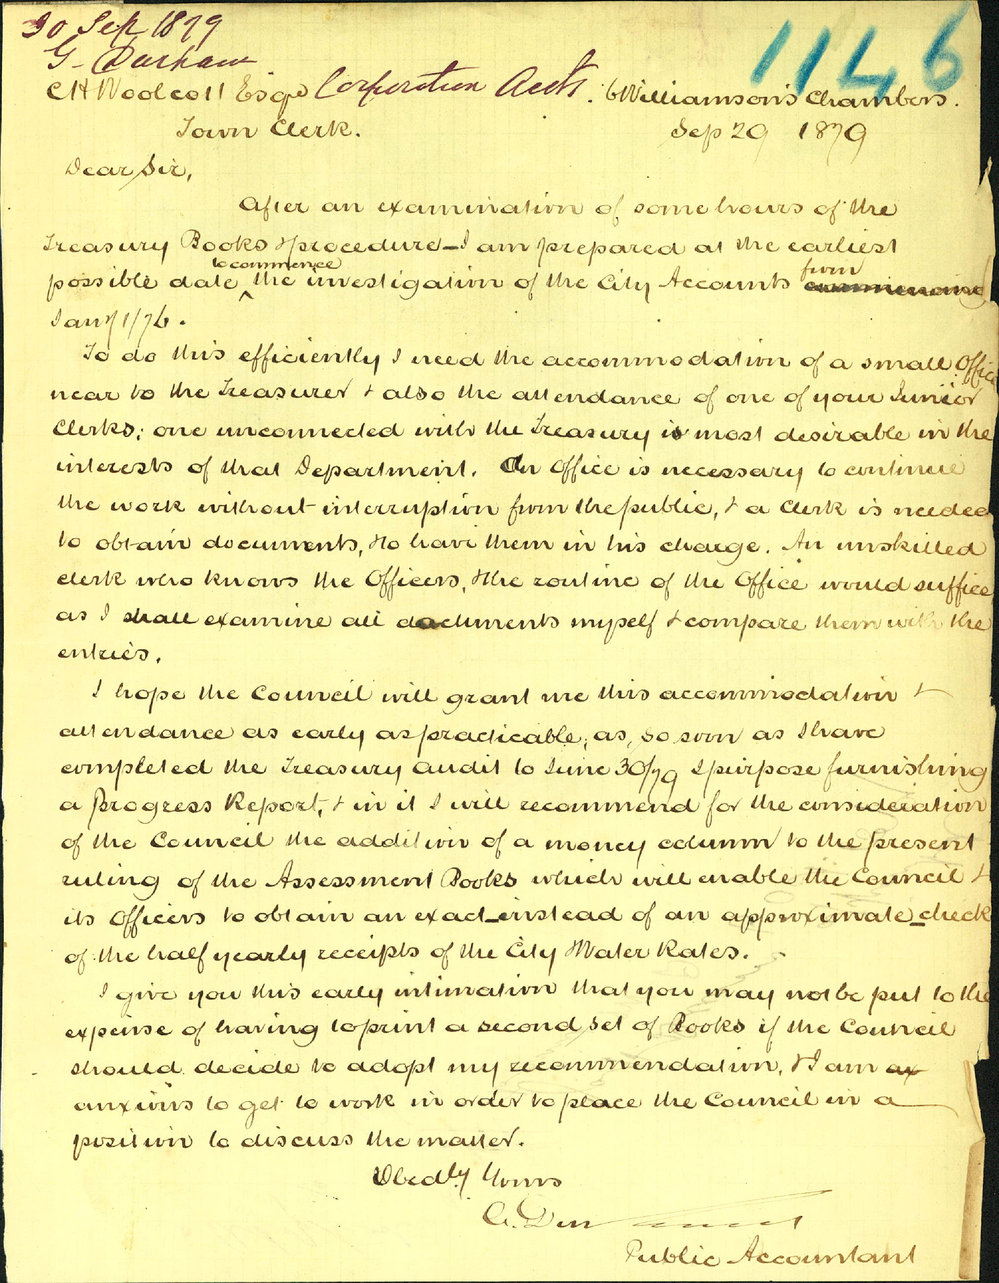 30 Sep 1879
1146
G. Durham
Corporation Accts.
C H Woolcott Esqre
6 Williamson's Chambers.
Town Clerk.
Sep 29 1879
Dear Sir,
After an examination of some hours of the
Treasury Books & procedure – I am prepared at the earliest
to commence from
possible date ^ the investigation of the City Accounts commencing
Jany 1/76.
To do this efficiently I need the accommodation of a small Office
near to the Treasurer & also the attendance of one of your Junior
Clerks; one unconnected with the Treasury is most desirable in the
interests of that Department. An Office is necessary to continue
the work without interruption from the public, & a Clerk is needed
to obtain documents, & to have them in his charge. An unskilled
clerk who knows the Officers, & the routine of the Office would suffice
as I shall examine all documents myself & compare them with the
entries.
I hope the Council will grant me this accommodation &
attendance as early as practicable; as, so soon as I have
completed the Treasury audit to June 30/79 I purpose furnishing
a Progress Report, & in it I will recommend for the consideration
of the Council the addition of a money column to the present
ruling of the Assessment Books which will enable the Council &
its Officers to obtain an exact – instead of an approximate – check
of the half yearly receipts of the City & Water Rates.
I give you this early intimation that you may not be put to the
expense of having to print a second set of Books if the Council
should decide to adopt my recommendation, & I am ax
anxious to get to work in order to place the Council in a
position to discuss the matter.
Obedly Yours
Public Accountant